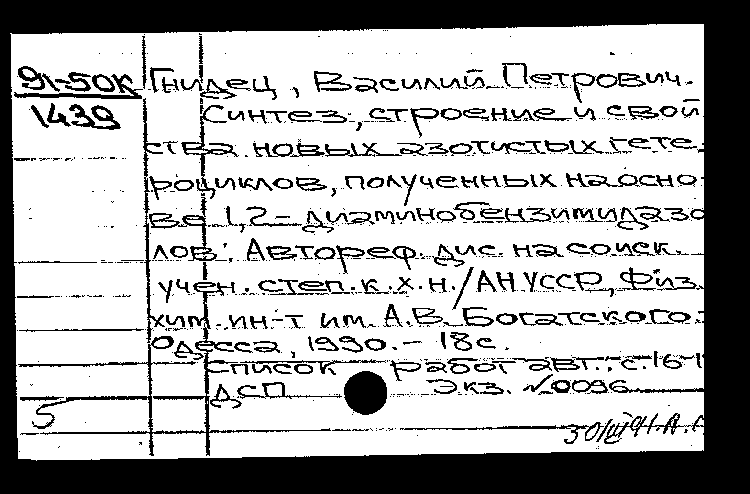 91-50К Гнидец, Василий Петрович.
1439 Синтез, строение и свой
ства новых азотистых гете
роциклов, полученных на осно
ве 1,2-диаминобензимидазо
лов: Автореф. дис. на соиск.
учен. степ. к. х. н. / АН УССР, Физ.
хим. ин-т им. А.В. Богатского.
Одесса, 1990. - 18 с.
Список работ авт.: с. 16-1
ДСП Экз. №0096
5
30/III 91. А.